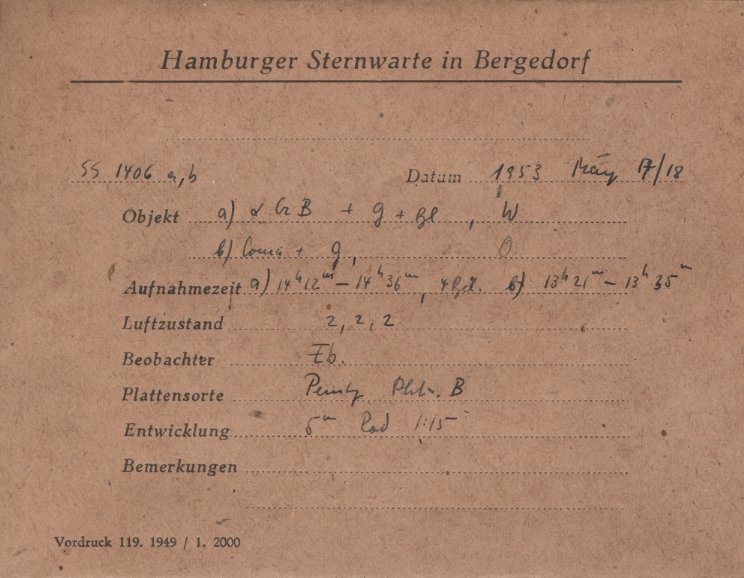 Hamburger Sternwarte in Bergedorf
SS 1406 a,b Datum 1953 März 17/18
Objekt a) α Cr B + g + Bl , W
b) Coma + g, O
Aufnahmezeit a) 14ʰ12ᵐ – 14ʰ36ᵐ, 4 Bel. b) 13ʰ21ᵐ – 13ʰ35ᵐ
Luftzustand 2, 2, 2
Beobachter Eb.
Plattensorte B
Entwicklung 5ᵐ Rod 1:15
Bemerkungen
Vordruck 119. 1949 / 1. 2000